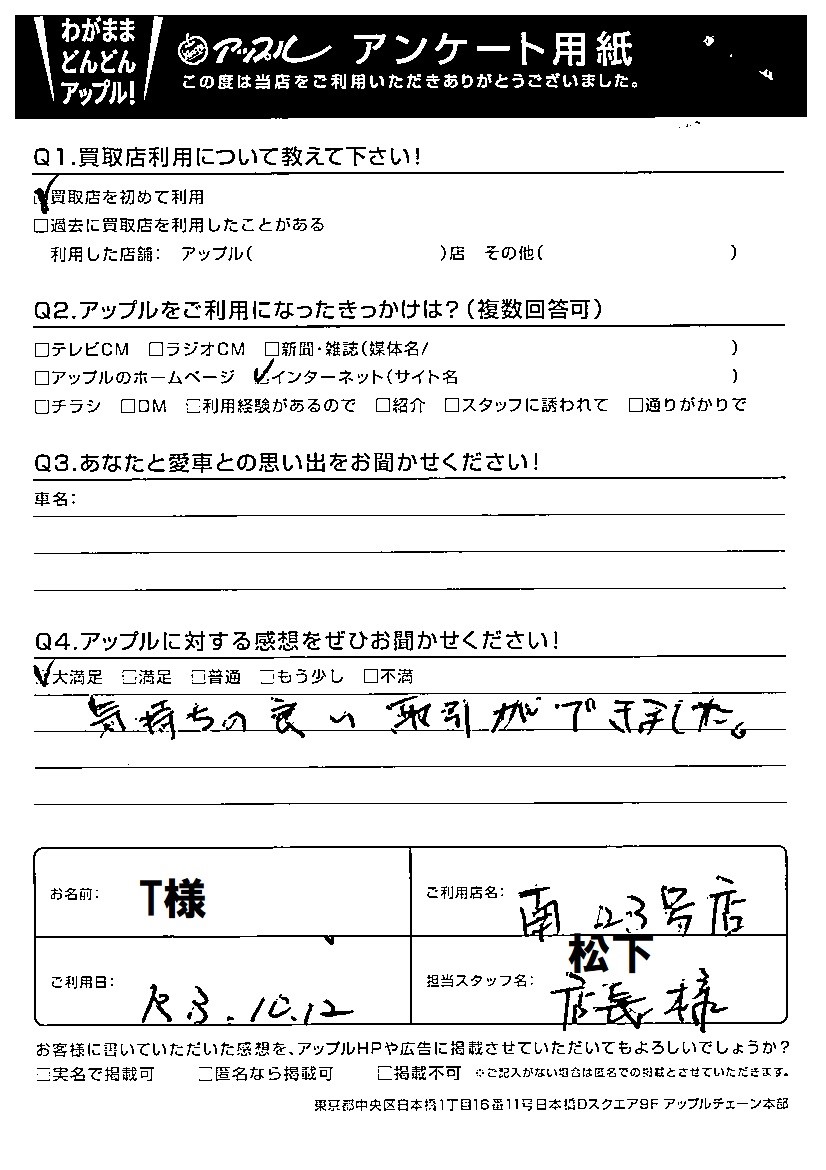 わがまま
どんどん
アップル!
アップル アンケート用紙
この度は当店をご利用いただきありがとうございました。
Q1.買取店利用について教えて下さい!
☑買取店を初めて利用
□過去に買取店を利用したことがある
利用した店舗: アップル( )店 その他( )
Q2.アップルをご利用になったきっかけは?(複数回答可)
□テレビCM □ラジオCM □新聞・雑誌(媒体名/ )
□アップルのホームページ ☑インターネット(サイト名 )
□チラシ □DM □利用経験があるので □紹介 □スタッフに誘われて □通りがかりで
Q3.あなたと愛車との思い出をお聞かせください!
車名:
Q4.アップルに対する感想をぜひお聞かせください!
☑大満足 □満足 □普通 □もう少し □不満
気持ちの良い取引ができました。
お名前: T様
ご利用店名: 南 23号店
ご利用日: R3.10.12
担当スタッフ名: 松下 店長様
お客様に書いていただいた感想を、アップルHPや広告に掲載させていただいてもよろしいでしょうか?
□実名で掲載可 □匿名なら掲載可 □掲載不可 ※ご記入がない場合は匿名での掲載とさせていただきます。
東京都中央区日本橋1丁目16番11号日本橋Dスクエア9F アップルチェーン本部